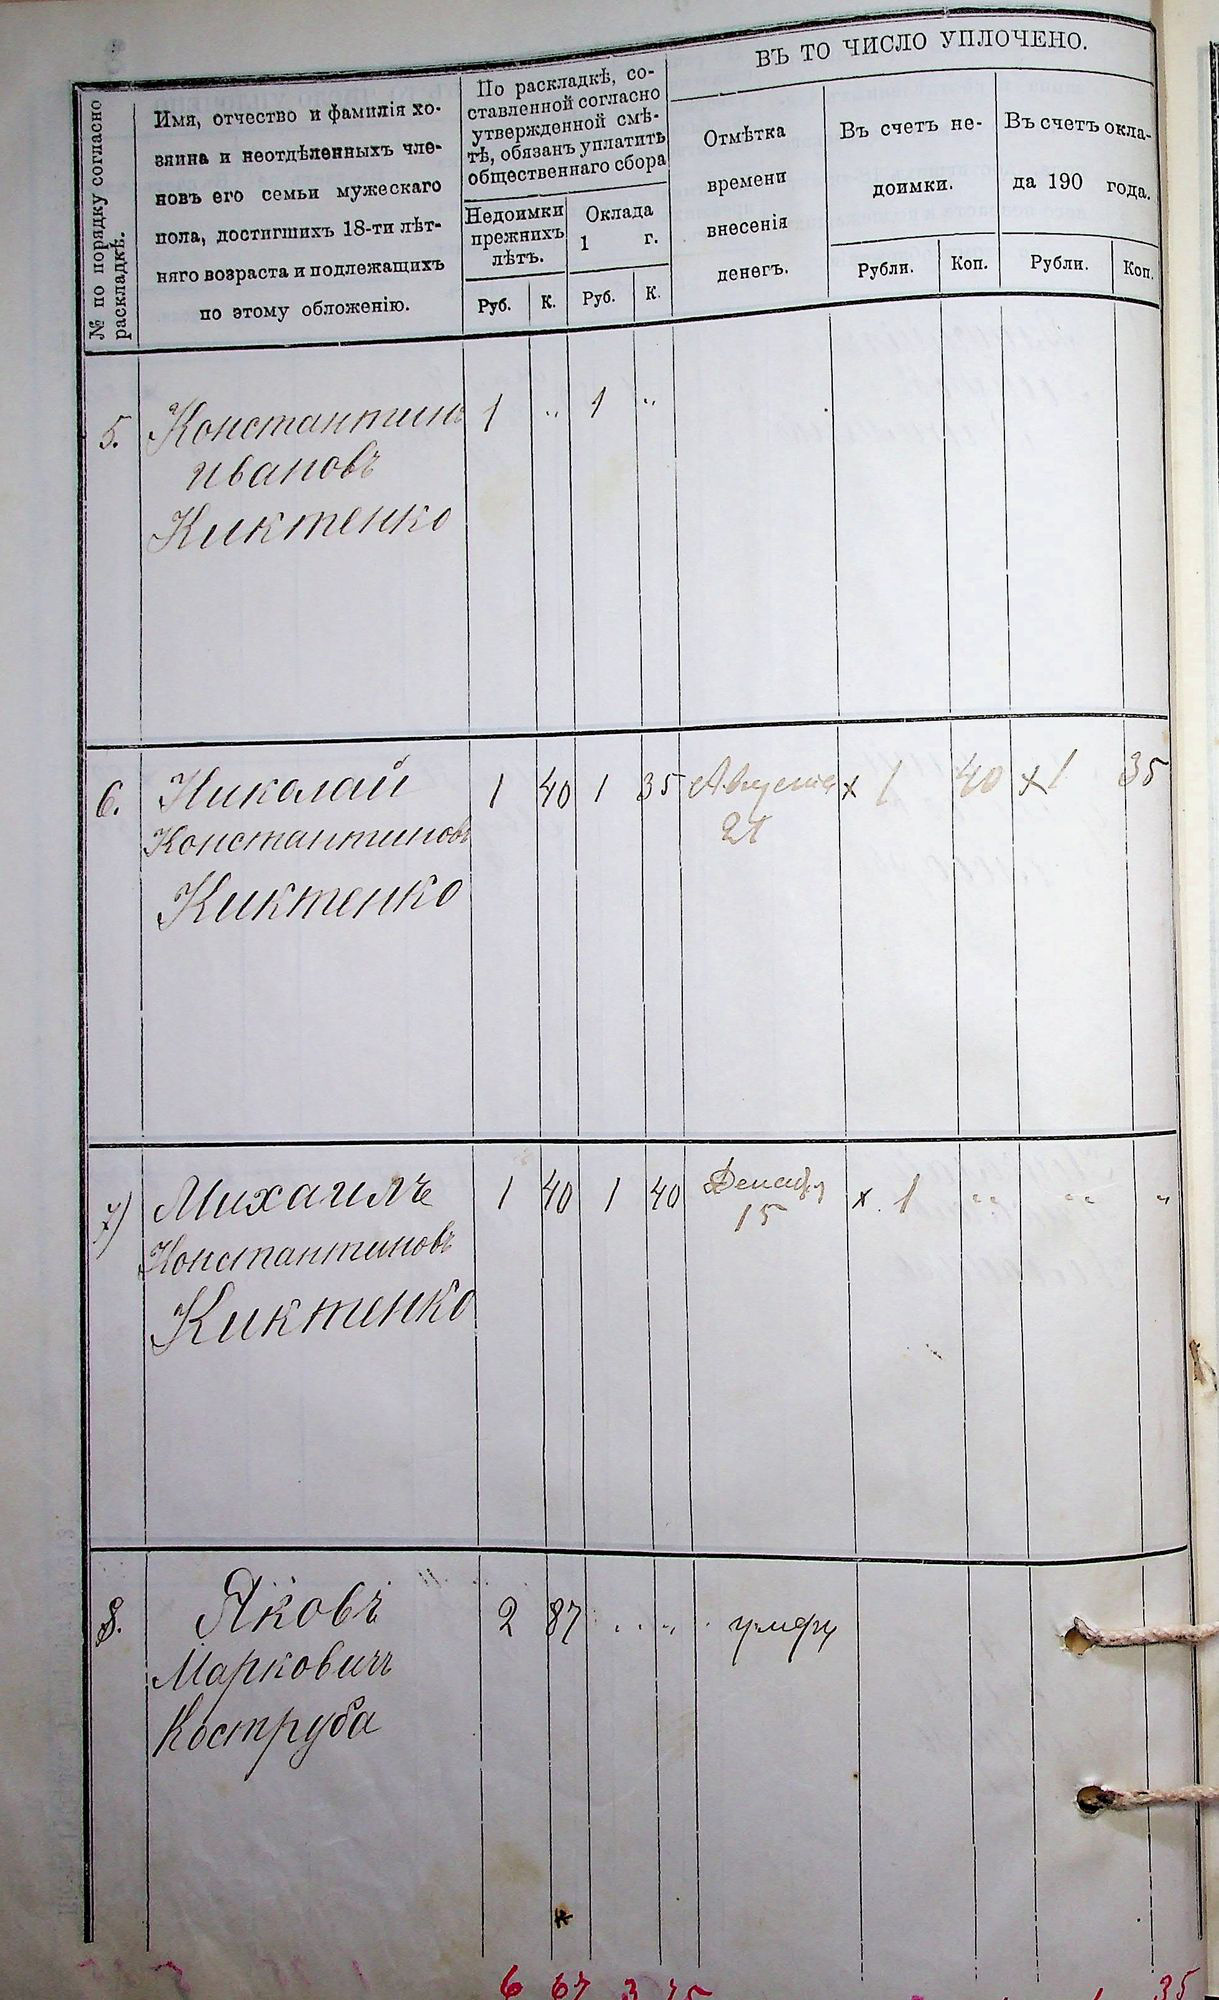 ВЪ ТО ЧИСЛО УПЛОЧЕНО.
№ по порядку согласно
раскладкѣ.
Имя, отчество и фамилія хо-
зяина и неотдѣленныхъ чле-
новъ его семьи мужескаго
пола, достигшихъ 18-ти лѣт-
няго возраста и подлежащихъ
по этому обложенію.
По раскладкѣ, со-
ставленной согласно
утвержденной смѣ-
тѣ, обязанъ уплатить
общественнаго сбора
Недоимки
прежнихъ
лѣтъ.
Оклада
1 г.
Отмѣтка
времени
внесенія
денегъ.
Въ счетъ не-
доимки.
Въ счетъ окла-
да 190 года.
Руб. К. Руб. К. Рубли. Коп. Рубли. Коп.
5. Константинъ 1 „ 1 „
Ивановъ
Киктенко
6. Николай 1 40 1 35 Августа х 1 40 х 1 35
Константиновъ 21
Киктенко
7) Михаилъ 1 40 1 40 Декабря х 1 „ „ „
Константиновъ 15
Киктенко
8. Яковъ 2 87 „ „ умеръ
Марковичъ
Коструба
6 67 3 75 35